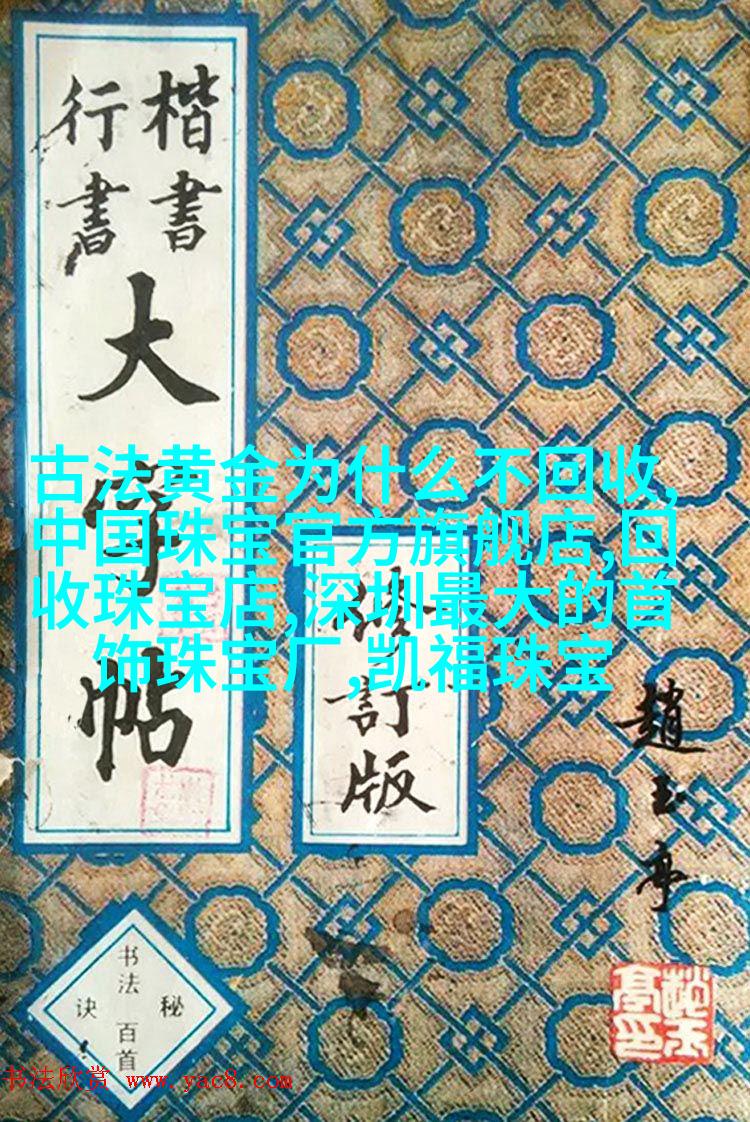 楷書
行書
大字帖
修訂版
趙玉亭
古法黄金为什么不回收,
中国珠宝官方旗舰店,回
收珠宝店,深圳最大的首
饰珠宝厂,凯福珠宝
书法百首
秘诀
书法欣赏 www.yac8.com